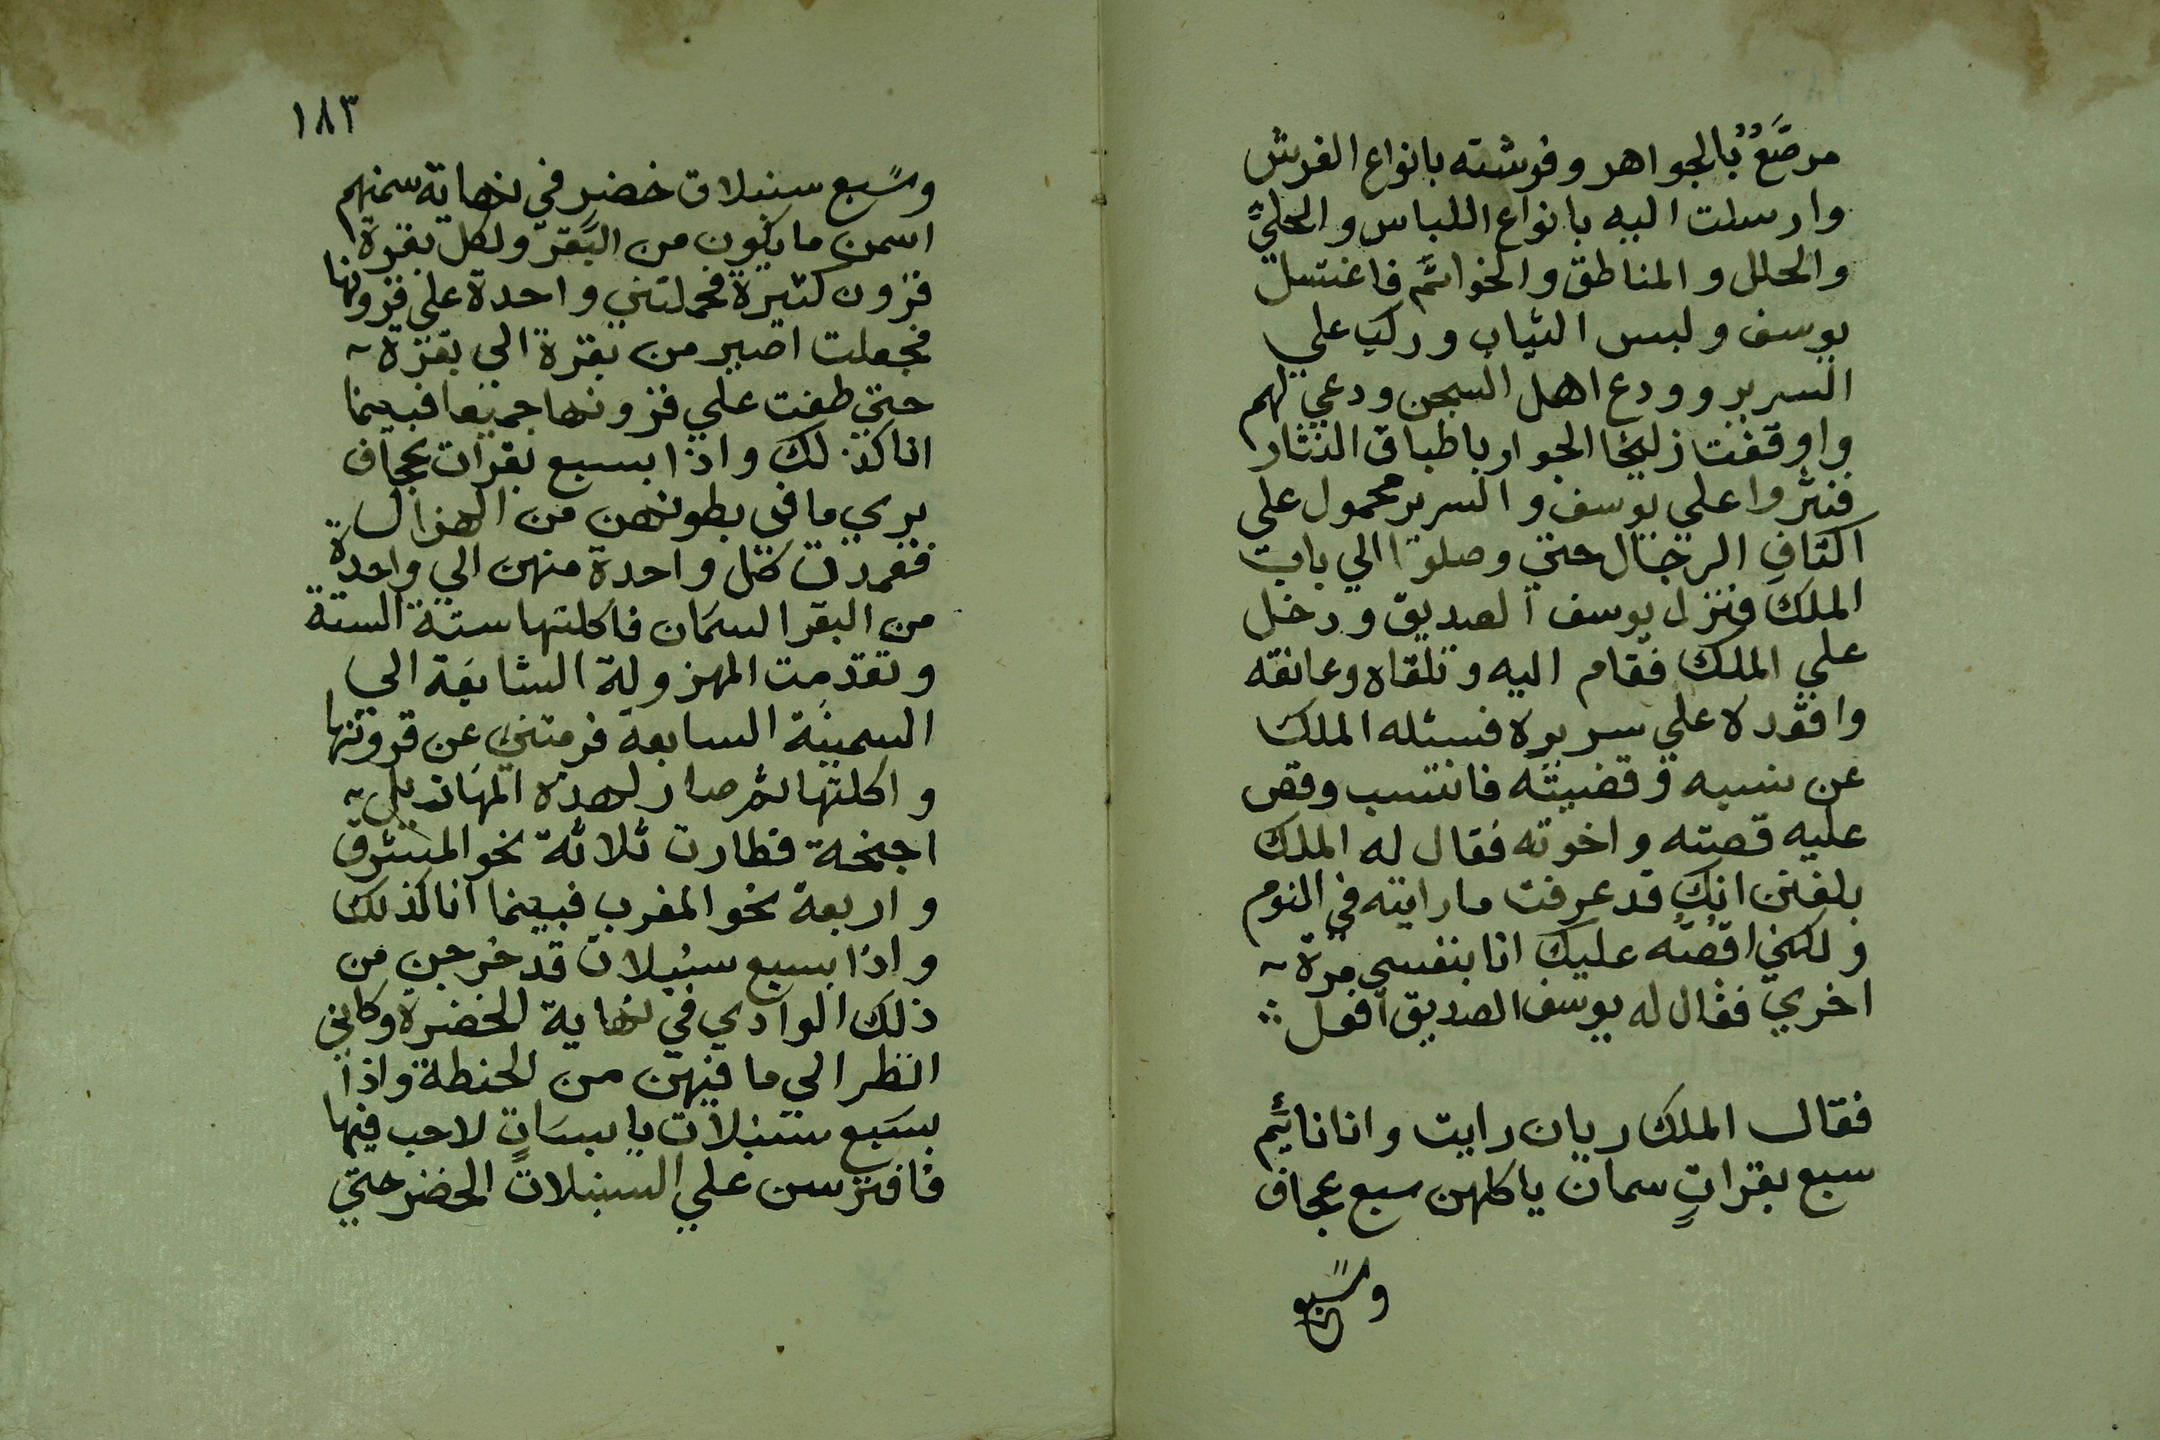 مرصَّعٌ بالجواهر وفرشته بانواع الفرش
وارسلت اليه بانواع اللباس والحليّ
والحلل والمناطق والخواتم فاغتسل
يوسف ولبس الثياب وركب علي
السرير وودع اهل السجن ودعي لهم
واوقفت زليخا الجوار باطباق النثار
فنثروا علي يوسف والسرير محمول على
اكتاف الرجال حتي وصلوا الي باب
الملك فنزل يوسف الصديق ودخل
علي الملك فقام اليه وتلقاه وعانقه
واقعده علي سريره فسئله الملك
عن نسبه وقضيته فانتسب وقص
عليه قصته واخوته فقال له الملك
بلغني انك قد عرفت ما رايته في النوم
ولكني اقصّه عليك انا بنفسي مرة
اخري فقال له يوسف الصديق افعل
فقال الملك ريان رايت وانا نائيم
سبع بقراتٍ سمان ياكلهن سبع عجاف
وسبع
١٨٣
وسبع سنبلات خضر في نهاية سمنهم
اسمن ما يكون من البقر ولكل بقرة
قرون كثيرة فحملتني واحدة علي قرونها
فجعلت اصير من بقرة الي بقرة
حتي طفت علي قرونها جميعا فبينما
انا كذلك واذا بسبع بقرات عجاف
يري ما في بطونهن من الهزال
فعمدت كل واحدة منهن الي واحدة
من البقر السمان فاكلتها ستة الستة
وتقدمت المهزولة السابعة الي
السمينة السابعة فرمتني عن قرونها
واكلتها ثم صار لهذه المهازيل
اجنحة فطارت ثلاثة نحو المشرق
واربعة نحو المغرب فبينما انا كذلك
واذا بسبع سنبلات قد خرجن من
ذلك الوادي في نهاية الخضرة وكاني
انظر الى ما فيهن من الحنطة واذا
بسبع سنبلات يابسات لا حب فيها
فافترسن علي السنبلات الخضر حتي